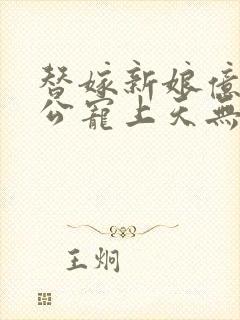 替嫁新娘億
公寵上天無
王炯